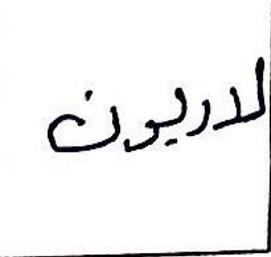 لاريون